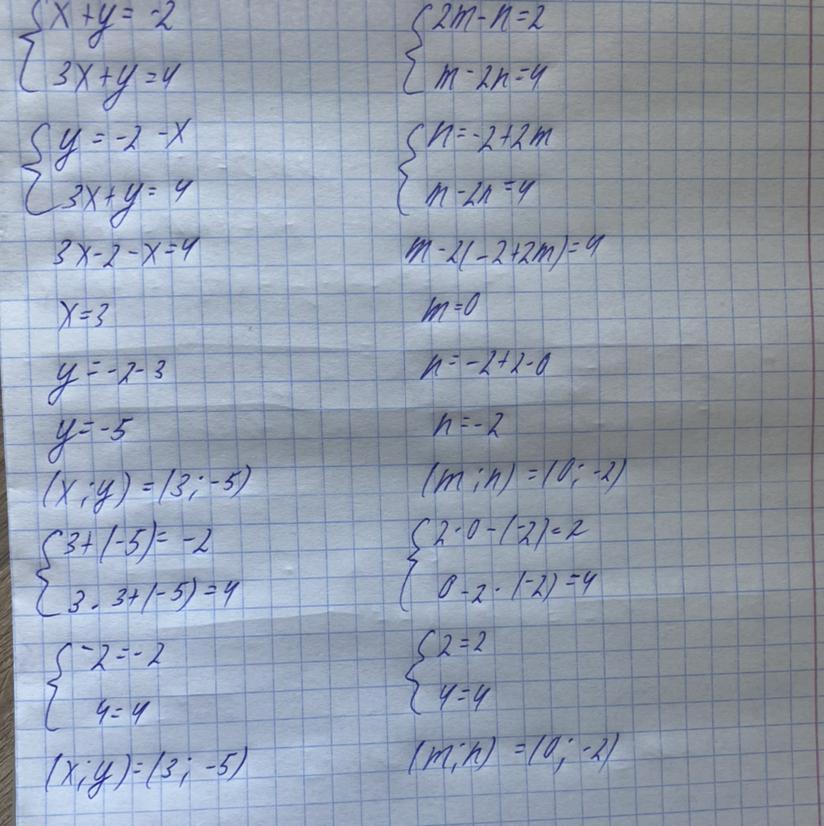 x+y=-2
3x+y=4
y=-2-x
3x+y=4
3x-2-x=4
x=3
y=-2-3
y=-5
(x;y)=(3;-5)
3+(-5)=-2
3·3+(-5)=4
-2=-2
4=4
(x;y)=(3;-5)
2m-n=2
m-2n=4
n=-2+2m
m-2n=4
m-2(-2+2m)=4
m=0
n=-2+2·0
n=-2
(m;n)=(0;-2)
2·0-(-2)=2
0-2·(-2)=4
2=2
4=4
(m;n)=(0;-2)